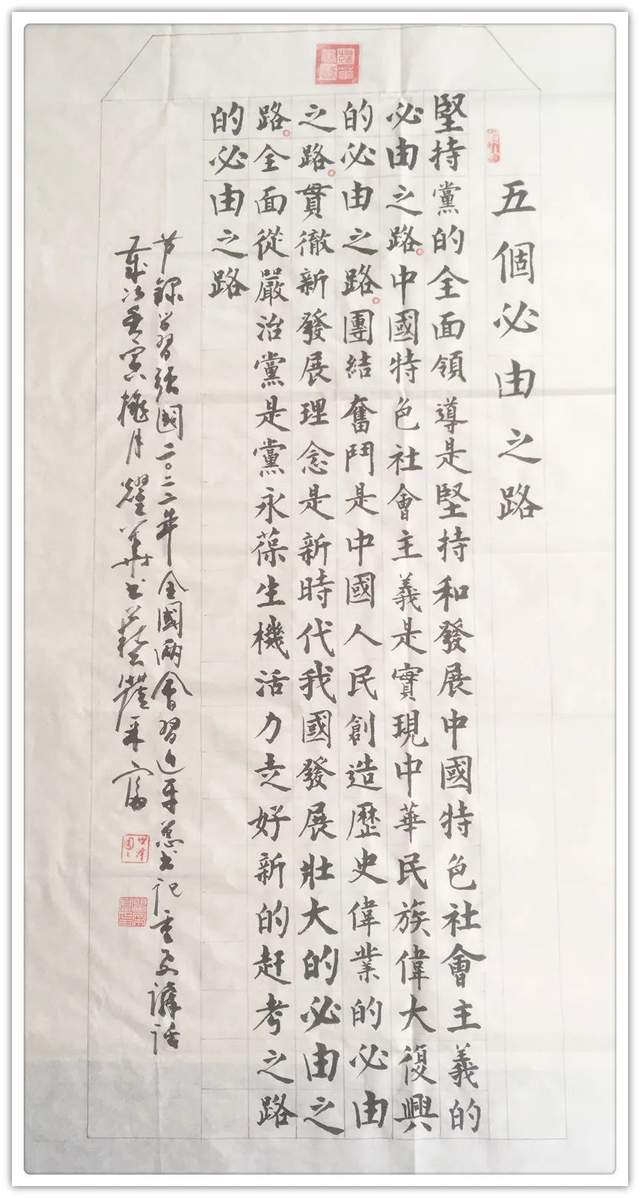 五個必由之路
堅持黨的全面領導是堅持和發展中國特色社會主義的
必由之路。中國特色社會主義是實現中華民族偉大復興
的必由之路。團結奮鬥是中國人民創造歷史偉業的必由
之路。貫徹新發展理念是新時代我國發展壯大的必由之
路。全面從嚴治黨是黨永葆生機活力走好新的赶考之路
的必由之路
节錄学習强國二〇二二年全國兩會習近平总书记重要講話
歲次壬寅 月耀華书